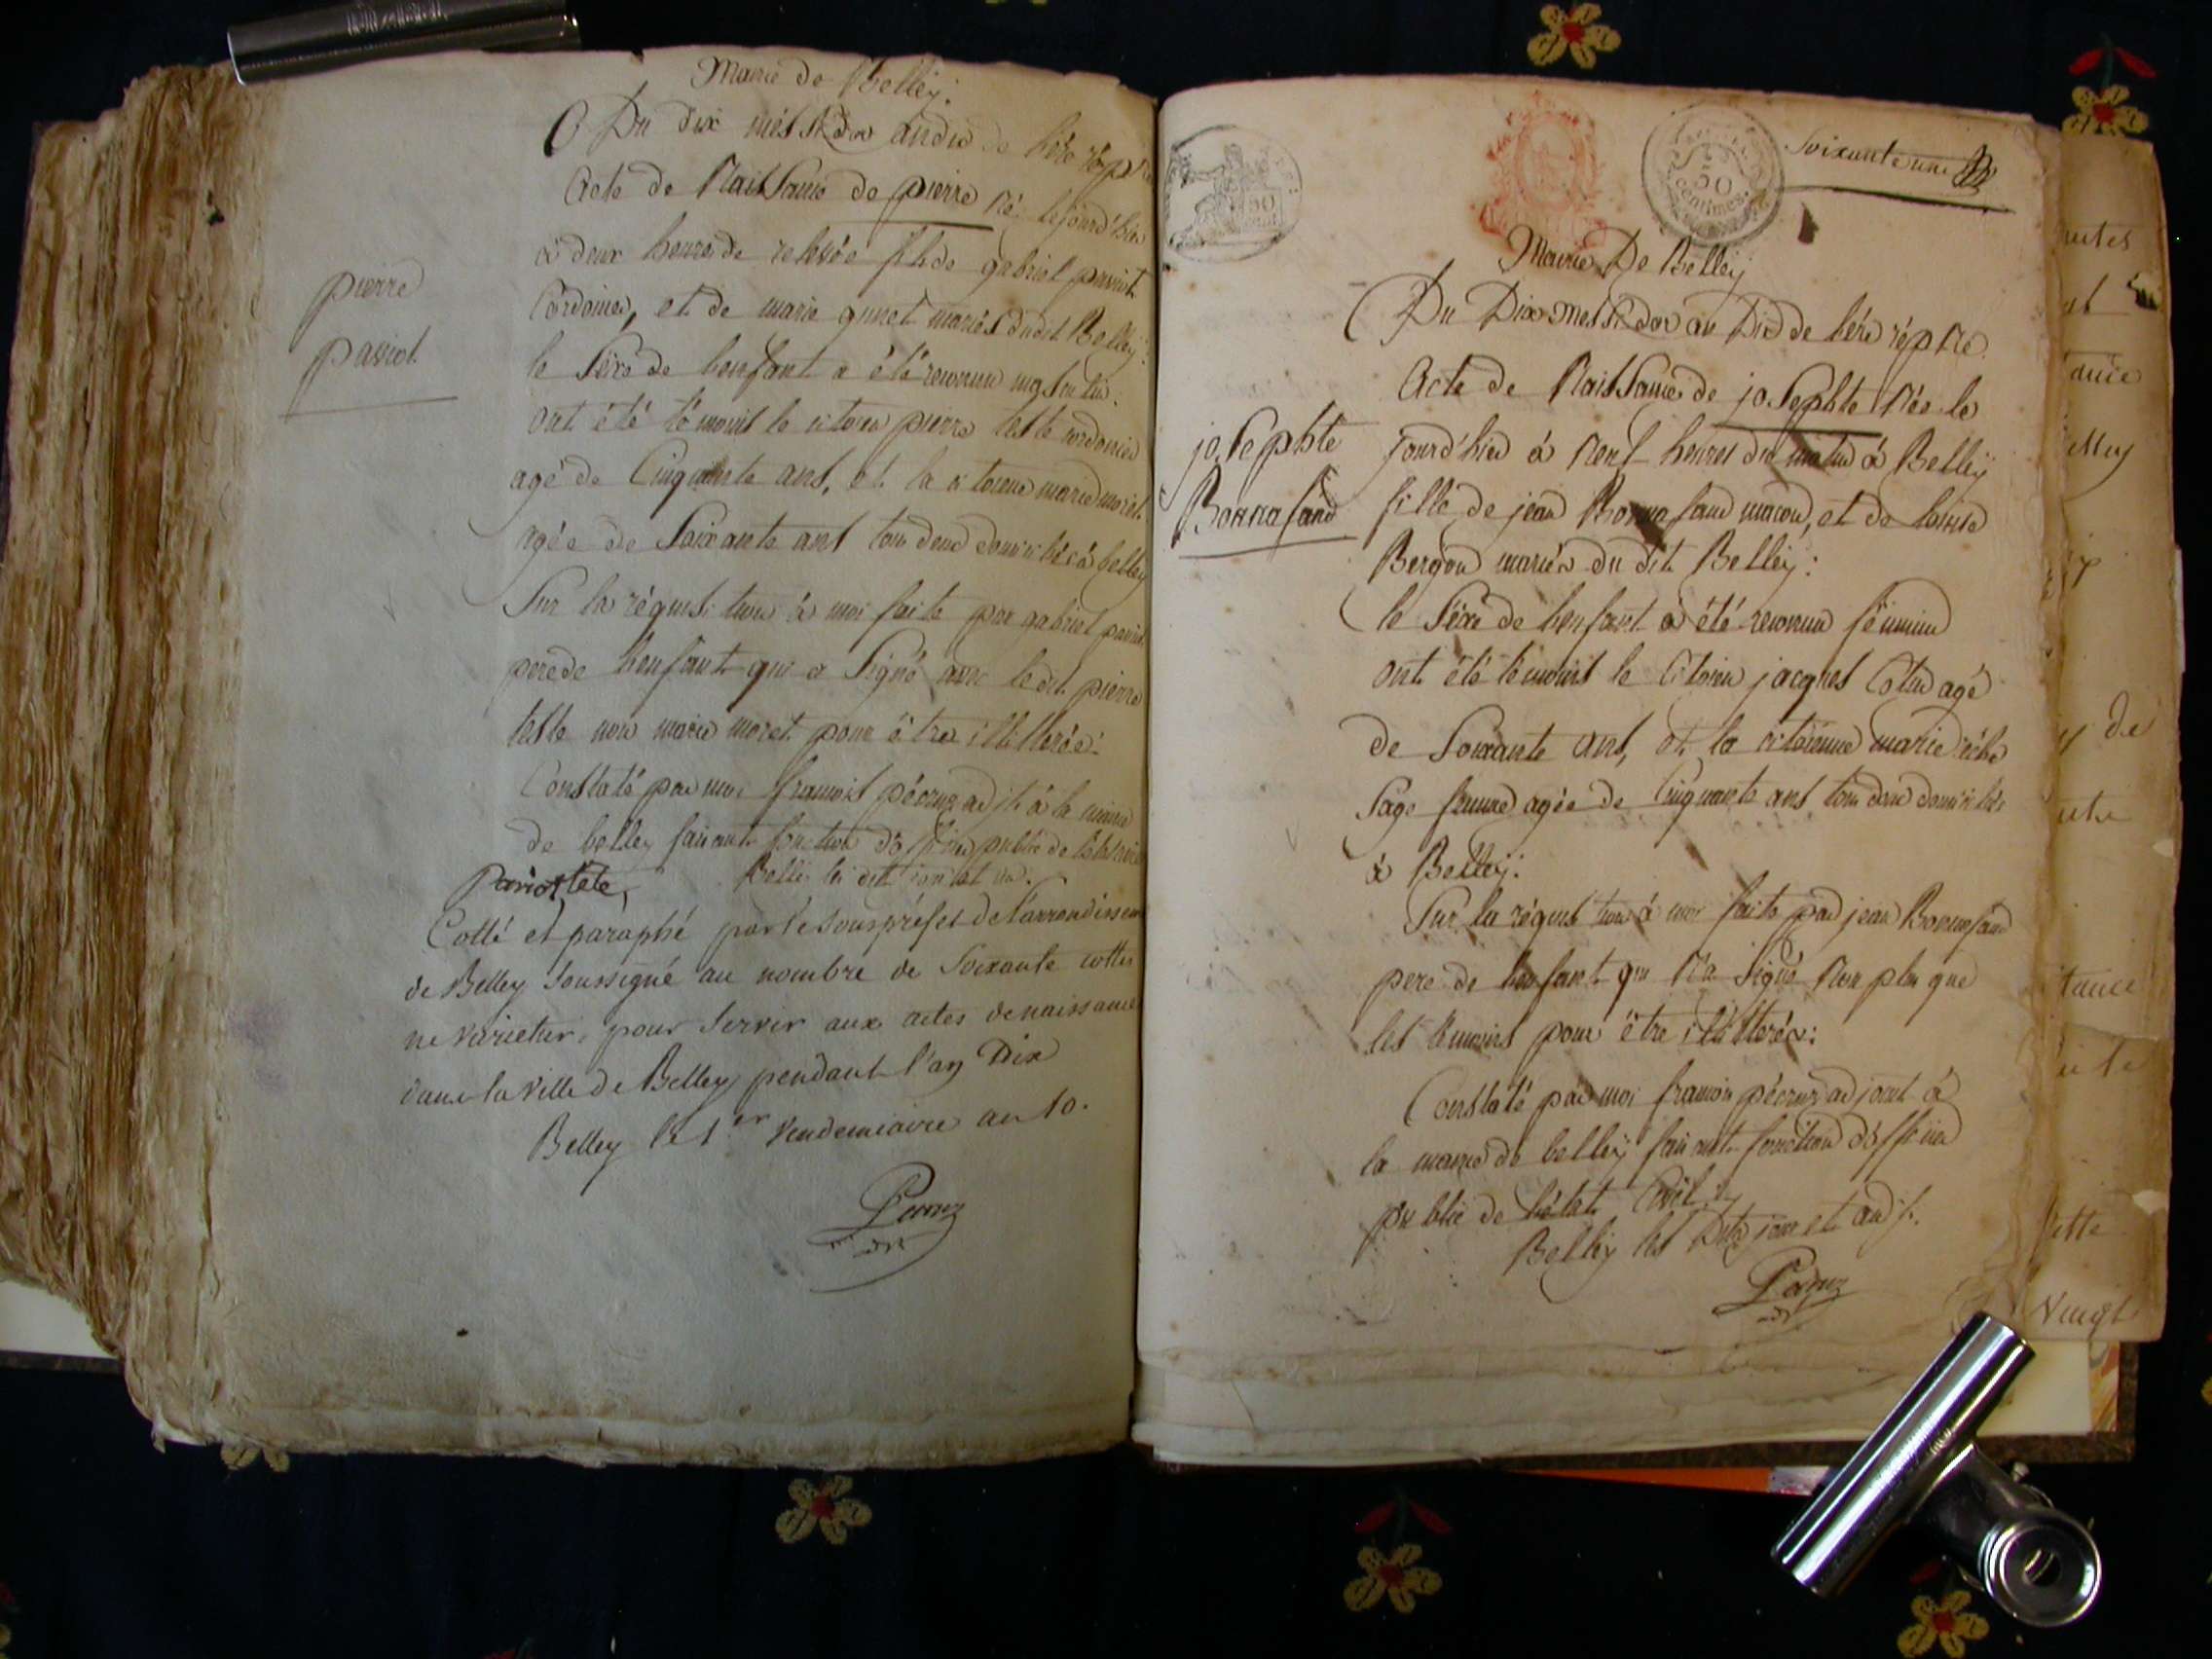 Mairie de Belley.
Du dix messidor an dix de l'ère rép
Acte de Naissance de pierre Né le jourd'hier
à deux heures de relevée fils de gabriel
Cordonier, et de marie mariés dudit Belley
pierre
le séxe de l'enfant a été reconnu masculin.
ont été témoins le citoien pierre teste cordonier
agé de Cinquante ans, et la citoienne marie moret
agée de Soixante ans tous deux domiciliés à belley
Sur la réquisition à moi faite par gabriel
pere de l'enfant qui a Signé avec ledit pierre
teste non marie moret pour être illitterée.
Constaté par moi françois pécruz adjt à la mairie
de belley faisant fonction d'officier public de l'état civil
Belley les dits jour et an.
Cotté et paraphé par le sous préfet de l'arrondissem
de Belley soussigné au nombre de Soixante cottes
ne varietur, pour servir aux actes de naissance
dans la ville de Belley pendant l'an Dix
Belley le 1er vendemiaire an 10.
50
50
centimes.
Soixante une
Mairie De Belley
Du Dix messidor an Dix de l'ère rép
Acte de Naissance de josephte Née le
josephte
jourd'hier à Neuf heures du matin à Belley
Bonnafand
fille de jean Bonnafand macon, et de louise
Bergon mariés du dit Belley:
le séxe de l'enfant a été reconnu féminin
ont été témoins le Citoien jacques Cotin agé
de Soixante ans, et la citoienne marie
Sage femme agée de Cinquante ans tous deux domiciliés
à Belley.
Sur la réquisition à moi faite par jean Bonnefand
pere de l'enfant qui N'a Signé Non plus que
les témoins pour être illitterés:
Constaté par moi françois pécruz adjoint à
la mairie de belley faisant fonction d'officier
public de l'état Civil
Belley les Dits jour et an